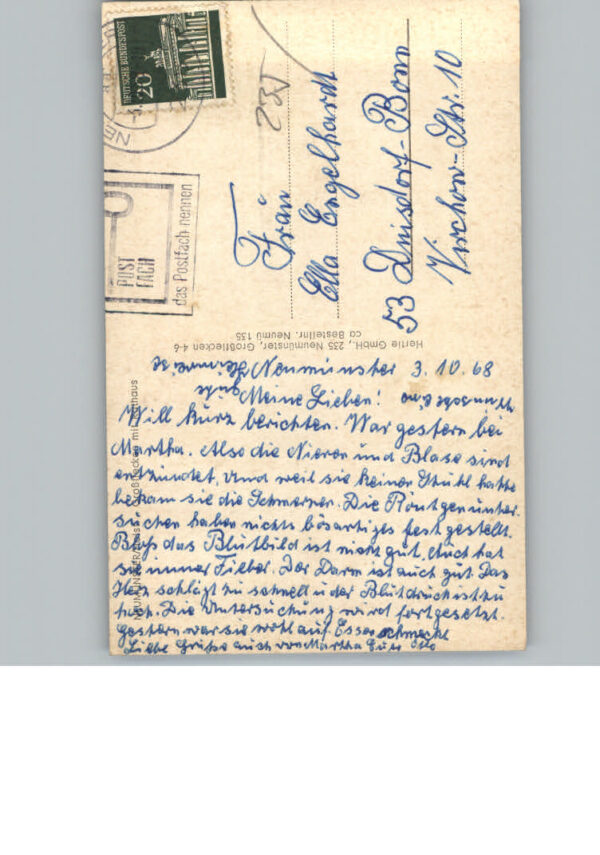 DEUTSCHE BUNDESPOST
20
235
POST
FACH
das Postfach nennen
Frau
Ella Engelhardt
53 Duisdorf-Bonn
Virchow-Str. 10
Hertie GmbH., 235 Neumünster, Großflecken 4-6
ca Bestellnr. Neumü 135
Großflecken mit Rathaus
Neumünster 3.10.68
Meine Lieben!
Will kurz berichten. War gestern bei
Martha. Also die Nieren und Blase sind
entzündet, und weil sie keinen Stuhl hatte
bekam sie die Schmerzen. Die Röntgenunter-
suchen haben nichts bösartiges fest gestellt.
Bloß das Blutbild ist nicht gut, Auch hat
sie immer Fieber. Der Darm ist auch gut. Das
Herz schlägt zu schnell u der Blutdruck ist zu
hoch. Die Untersuchung wird fortgesetzt.
Gestern war sie wohl auf. Essen schmeckt
Liebe Grüße auch von Martha Euer Otto